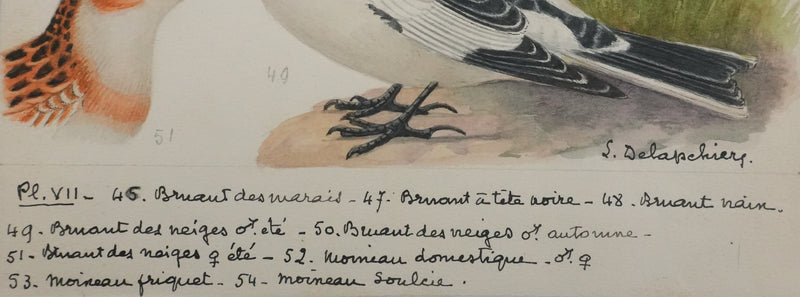 49
51
L. Delapchier.
Pl. VII - 46. Bruant des marais - 47. Bruant à tête noire - 48. Bruant nain.
49. Bruant des neiges ♂ été - 50. Bruant des neiges ♂ automne -
51 - Bruant des neiges ♀ été - 52. Moineau domestique - ♂ ♀
53. Moineau friquet - 54 - Moineau Soulcie.